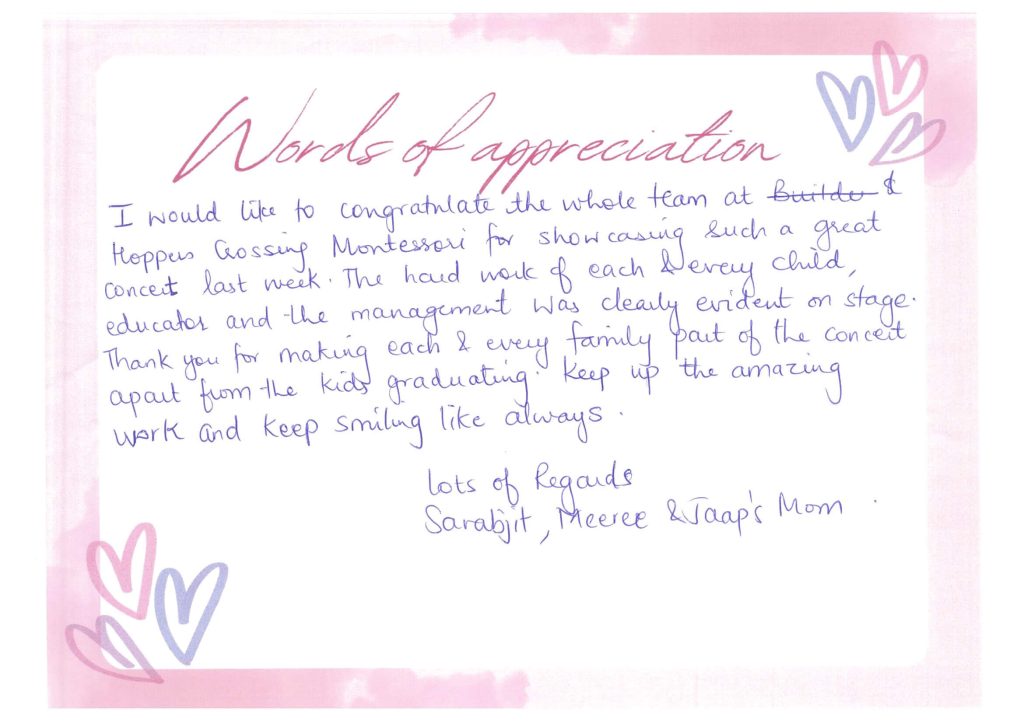 Words of appreciation
I would like to congratulate the whole team at &
Hoppers Crossing Montessori for showcasing such a great
concert last week. The hard work of each & every child,
educator and the management was clearly evident on stage.
Thank you for making each & every family part of the concert
apart from the kids graduating. Keep up the amazing
work and keep smiling like always.
Lots of Regards
Sarabjit, Meeree & Jaap's Mom